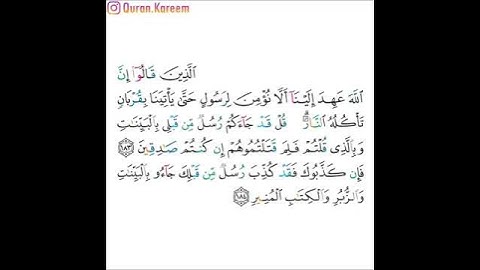 Quran.Kareem
الَّذِينَ قَالُوٓا۟ إِنَّ
اللَّهَ عَهِدَ إِلَيْنَآ أَلَّا نُؤْمِنَ لِرَسُولٍ حَتَّىٰ يَأْتِيَنَا بِقُرْبَانٍ
تَأْكُلُهُ النَّارُ ۗ قُلْ قَدْ جَآءَكُمْ رُسُلٌ مِّن قَبْلِي بِالْبَيِّنَاتِ
وَبِالَّذِي قُلْتُمْ فَلِمَ قَتَلْتُمُوهُمْ إِن كُنتُمْ صَادِقِينَ ١٨٣
فَإِن كَذَّبُوكَ فَقَدْ كُذِّبَ رُسُلٌ مِّن قَبْلِكَ جَآءُو بِالْبَيِّنَاتِ
وَالزُّبُرِ وَالْكِتَابِ الْمُنِيرِ ١٨٤